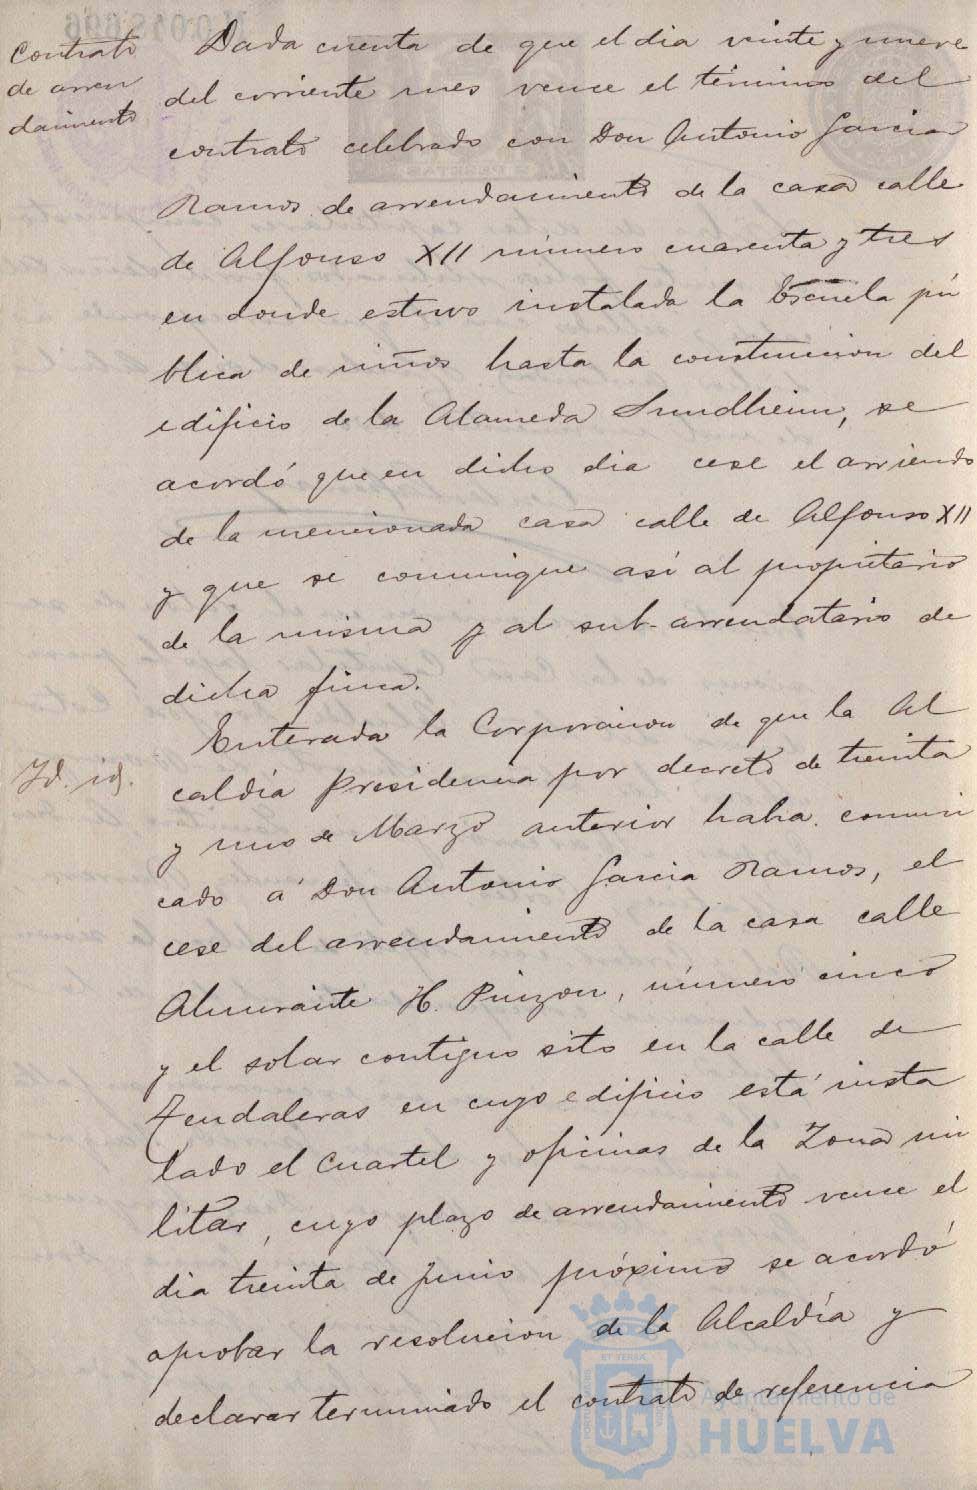 Contrato
de arren
damiento
Dada cuenta de que el dia veinte y nueve
del corriente mes vence el término del
contrato celebrado con Don Antonio Garcia
Ramos de arrendamiento de la casa calle
de Alfonso XII número cuarenta y tres
en donde estuvo instalada la Escuela pú
blica de niños hasta la construccion del
edificio de la Alameda Sundheim, se
acordó que en dicho dia cese el arriendo
de la mencionada casa calle de Alfonso XII
y que se comunique así al propietario
de la misma y al sub-arrendatario de
dicha finca.
Id. id.
Enterada la Corporacion de que la Al
caldía Presidencia por decreto de treinta
y uno de Marzo anterior habia comuni
cado á Don Antonio Garcia Ramos, el
cese del arrendamiento de la casa calle
Almirante H. Pinzon, número cinco
y el solar contiguo sito en la calle de
Tendaleras en cuyo edificio está insta
lado el Cuartel y oficinas de la Zona mi
litar, cuyo plazo de arrendamiento vence el
dia treinta de Junio próximo se acordó
aprobar la resolucion de la Alcaldía y
declarar terminado el contrato de referencia
Ayuntamiento de
HUELVA